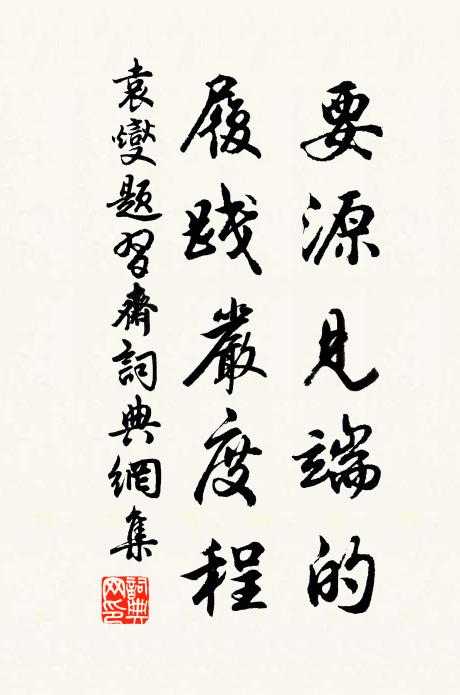 要源見端的
履踐嚴度程
袁燮題習齋詞典網集
詞典網印